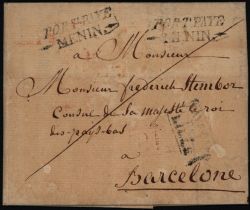 PORT PAYE
MENIN
PORT PAYE
MENIN
à Monsieur
Monsieur frederick Stembor
Consul de sa majesté le roi
des-pays-bas
à
LILLE
Barcelone